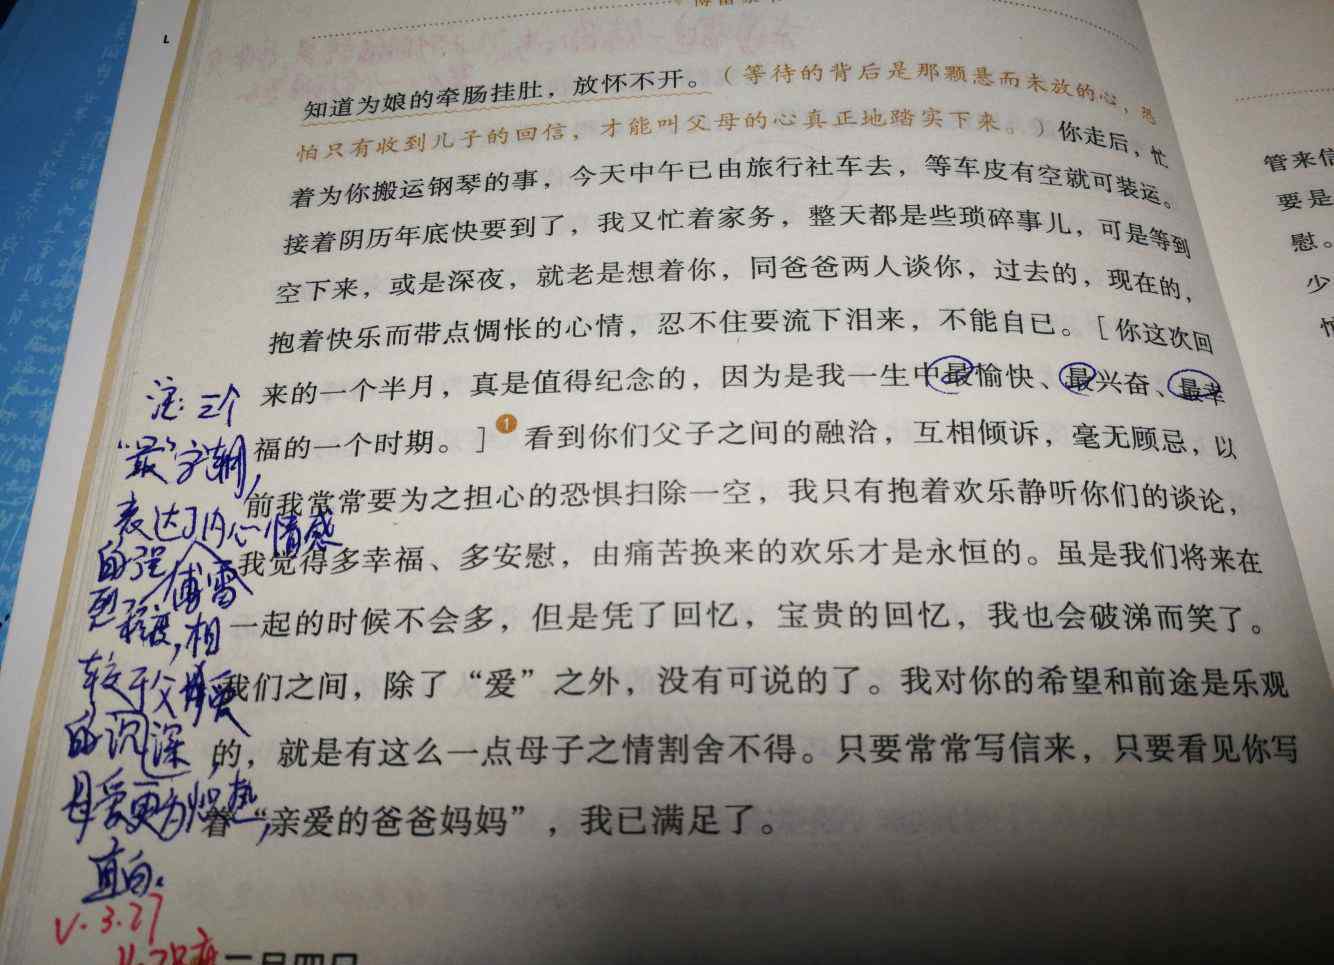 知道为娘的牵肠挂肚，放怀不开。（等待的背后是那颗悬而未放的心，恐
怕只有收到儿子的回信，才能叫父母的心真正地踏实下来。）你走后，忙
着为你搬运钢琴的事，今天中午已由旅行社车去，等车皮有空就可装运。
接着阴历年底快要到了，我又忙着家务，整天都是些琐碎事儿，可是等到
空下来，或是深夜，就老是想着你，同爸爸两人谈你，过去的，现在的，
抱着快乐而带点惆怅的心情，忍不住要流下泪来，不能自已。［你这次回
来的一个半月，真是值得纪念的，因为是我一生中最愉快、最兴奋、最幸
福的一个时期。］1 看到你们父子之间的融洽，互相倾诉，毫无顾忌，以
前我常常要为之担心的恐惧扫除一空，我只有抱着欢乐静听你们的谈论，
我觉得多幸福、多安慰，由痛苦换来的欢乐才是永恒的。虽是我们将来在
一起的时候不会多，但是凭了回忆，宝贵的回忆，我也会破涕而笑了。
我们之间，除了“爱”之外，没有可说的了。我对你的希望和前途是乐观
的，就是有这么一点母子之情割舍不得。只要常常写信来，只要看见你写
着“亲爱的爸爸妈妈”，我已满足了。
三个
“最”字
表达了内心情感
的强
烈程度，相
傅雷
较于父爱
的沉深，
母爱更为炽热，
直白。
3.27
管来信
要是
慰。
少